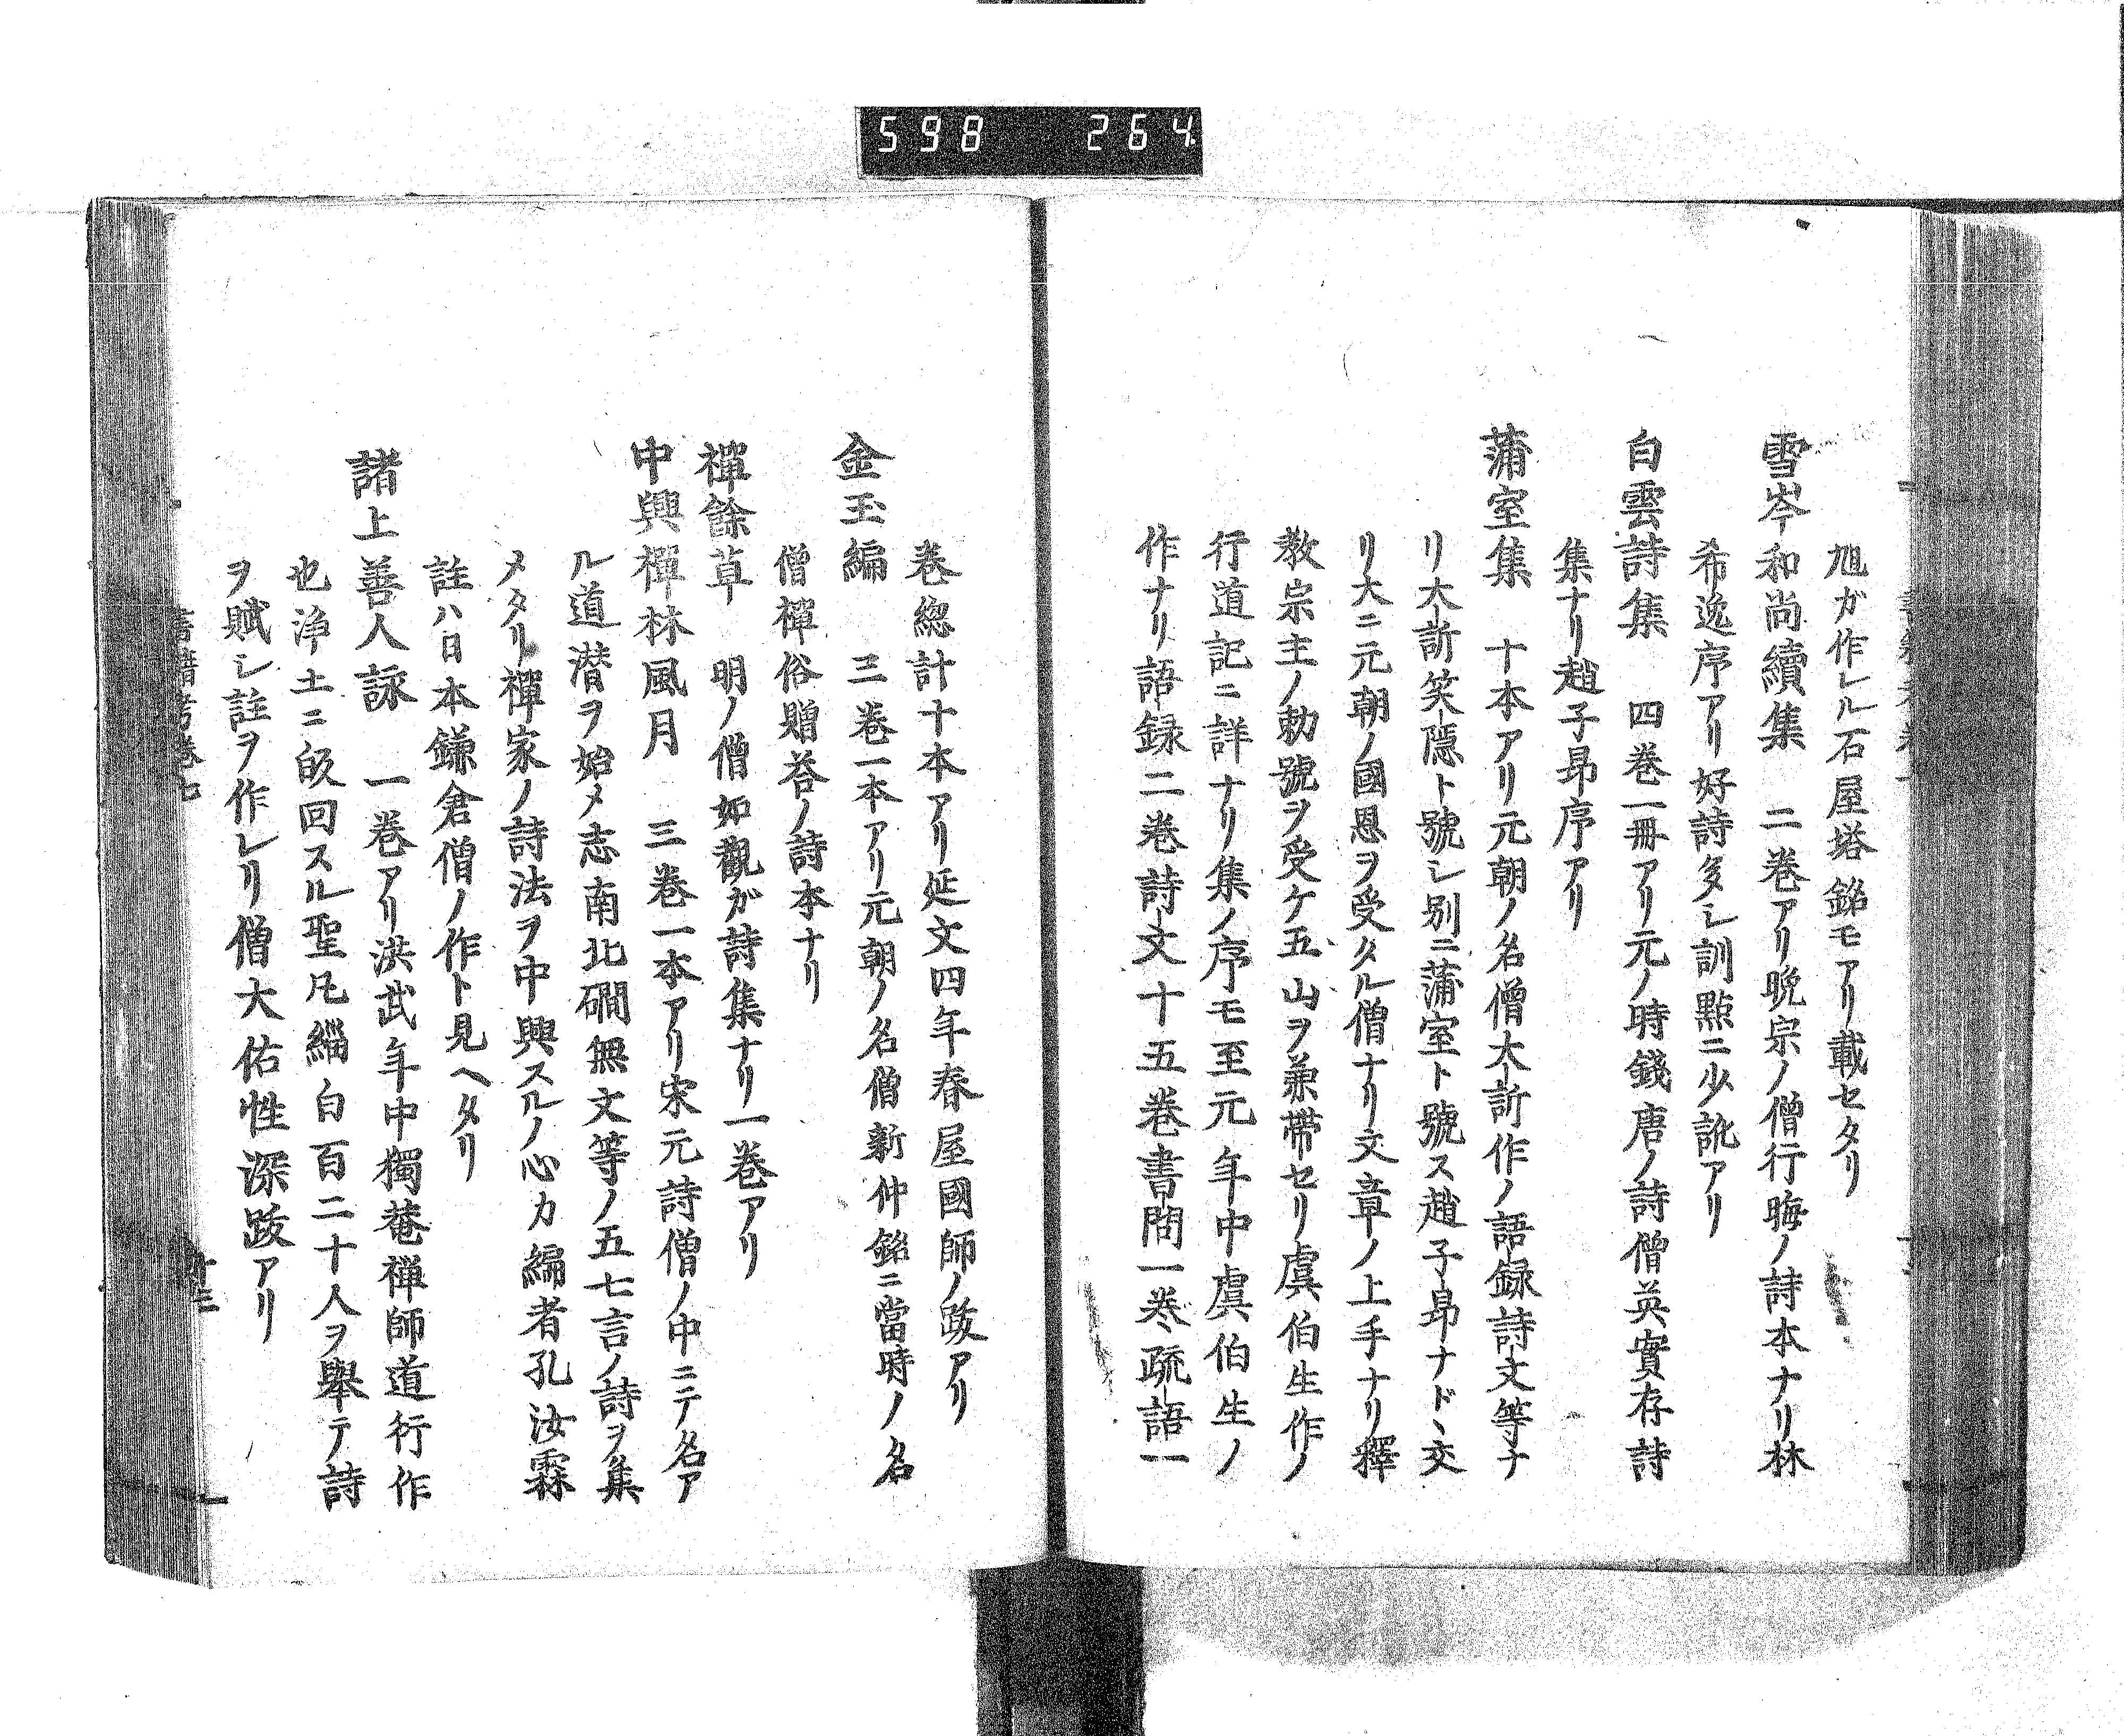 598 264
旭ガ作レル石屋塔銘モアリ載セタリ
雪岑和尚續集 二巻アリ晩宗ノ僧行晦ノ詩本ナリ林
希逸序アリ好詩多シ訓點ニ少訛アリ
白雲詩集 四巻一冊アリ元ノ時錢唐ノ詩僧英實存詩
集ナリ趙子昻序アリ
蒲室集 十本アリ元朝ノ名僧大訢作ノ語録詩文等ナ
リ大訢笑隱ト號シ別ニ蒲室ト號ス趙子昻ナド、交
リ大ニ元朝ノ國恩ヲ受タル僧ナリ文章ノ上手ナリ釋
教宗主ノ勅號ヲ受ケ五山ヲ兼帶セリ虞伯生作ノ
行道記ニ詳ナリ集ノ序モ至元年中虞伯生ノ
作ナリ語録二巻詩文十五巻書問一巻疏語一
巻総計十本アリ延文四年春屋國師ノ跋アリ
金玉編 三巻一本アリ元朝ノ名僧新仲銘ニ當時ノ名
僧禪俗贈荅ノ詩本ナリ
禪餘草 明ノ僧如觀ガ詩集ナリ一巻アリ
中興禪林風月 三巻一本アリ宋元詩僧ノ中ニテ名ア
ル道潜ヲ始メ志南北磵無文等ノ五七言ノ詩ヲ集
メタリ禪家ノ詩法ヲ中興スルノ心カ編者孔汝霖
註ハ日本鎌倉僧ノ作ト見ヘタリ
諸上善人詠 一巻アリ洪武年中獨菴禅師道行作
也浄土ニ皈回スル聖凡緇白百二十人ヲ舉テ詩
ヲ賦シ註ヲ作レリ僧大佑性深跋アリ
書籍考巻七